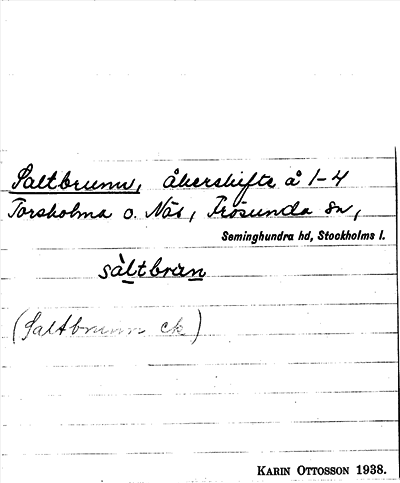 Saltbrunn, åkerskifte å 1-4
Torsholma o. Näs, Frösunda sn,
Seminghundra hd, Stockholms l.
sàltbran
(Saltbrunn ek)
KARIN OTTOSSON 1938.